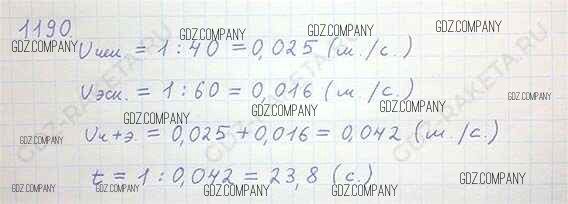 1190.
GDZ.COMPANY GDZ.COMPANY GDZ.COMPANY GDZ.COMPANY
Vчел. = 1 : 40 = 0,025 (м./с.)
GDZ.COMPANY GDZ.COMPANY
Vэск. = 1 : 60 = 0,016 (м./с.)
GDZ.COMPANY GDZ.COMPANY
GDZ.COMPANY
Vч+э. = 0,025 + 0,016 = 0,042 (м./с.)
GDZ.COMPANY GDZ.COMPANY
t = 1 : 0,042 = 23,8 (с.)
GDZ.COMPANY GDZ.COMPANY GDZ.COMPANY GDZ.COMPANY GDZ.COMPANY
GDZ-RAKETA.RU
GDZ-RAKETA.RU